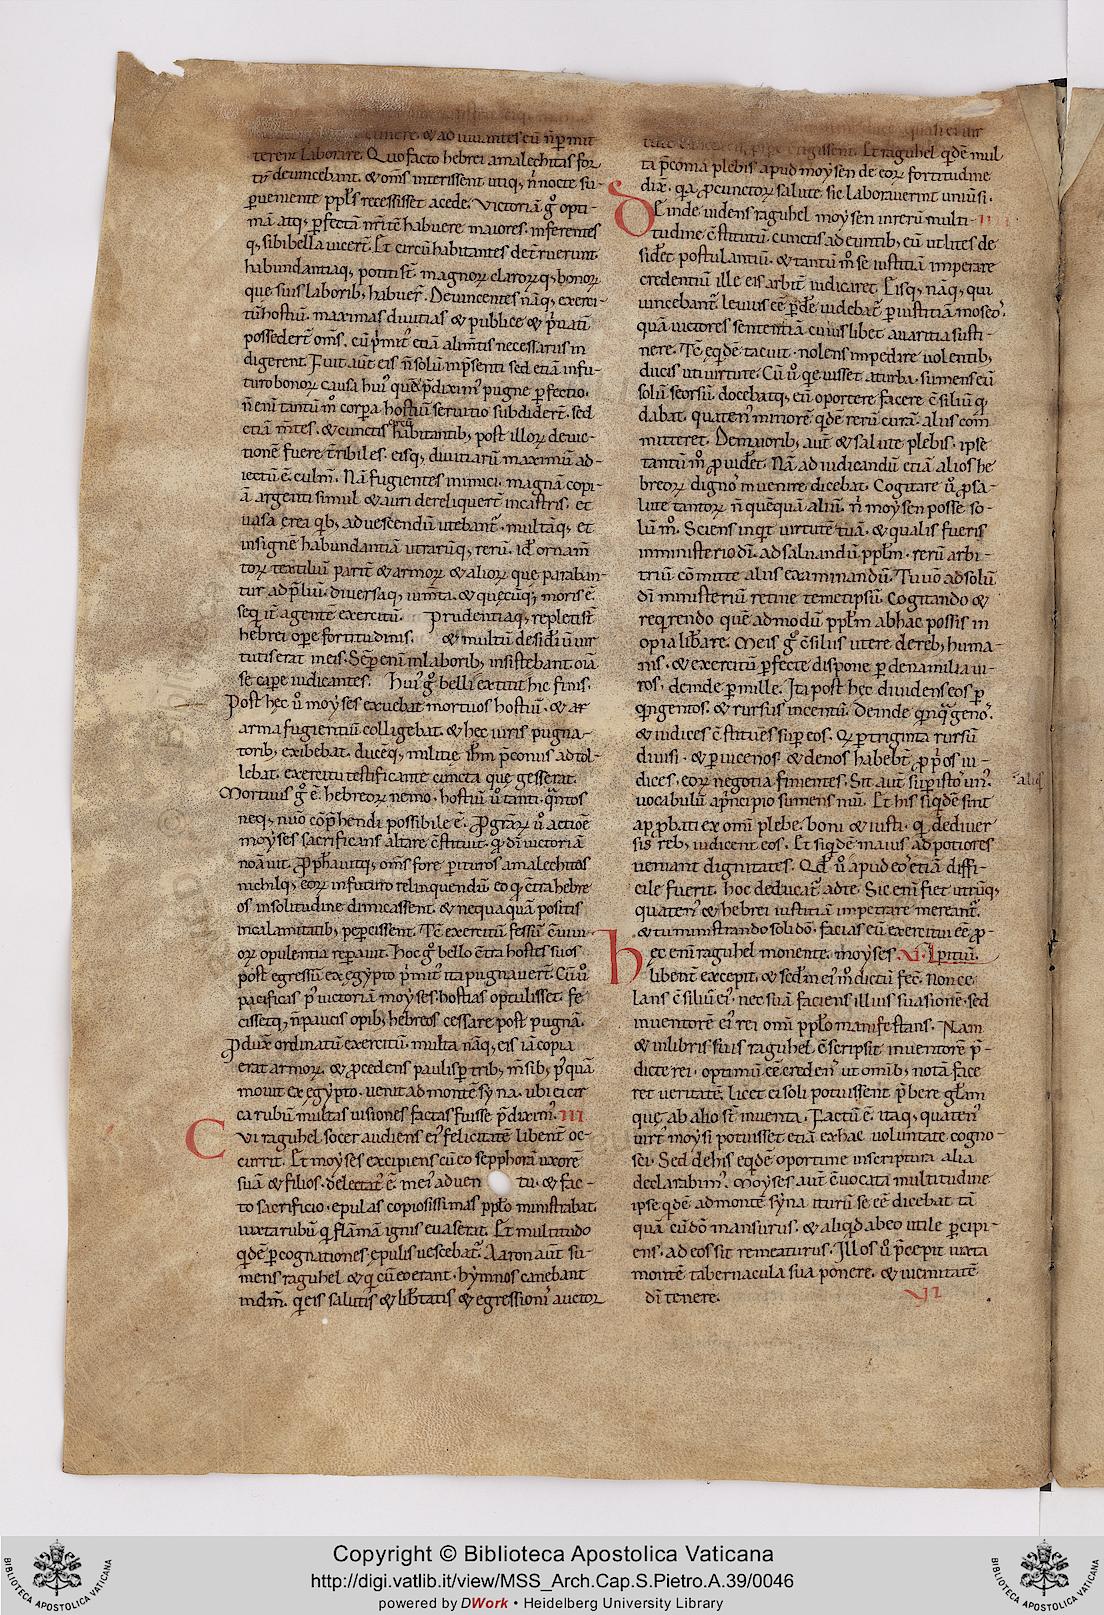 &amp; ad iuuantes eū n̄ p̄mit
terent laborare. Quo facto hebrei amalechitas for
tit̄ deuincebant. &amp; om̄s interissent utiq; n̄ nocte su
ꝑueniente ppl̄s recessisset a cede. Victoriā g͛ opti
mā atq; ꝑfectā nr̄i tc̄ habuere maiores. inferentes
q; sibi bella uicer̄t. Et circū habitantes det̄ruerunt.
habundantiaq; potiti st̄. magnoꝝ claroꝝq; bonoꝝ
que suis laborib; habuer̄t. Deuincentes nāq; exerci
tū hostiū. maximas diuitias &amp; publice &amp; p͛uati
possederēt om̄s. cū p͛mit͛ etiā alim̄tis necessariis in
digerent. Fuit aut̄ eis n̄ solū in p̄senti sed etiā in fu
turo bonoꝝ causa hui͛ quē p̄dixim͛ pugne ꝑfectio.
n̄ eni tantū m͛ corpa hostiū seruitio subdider̄t. sed
etiā m̄tes. &amp; cunctis circū habitantib; post illoꝝ deuic
tionē fuere t̄ribiles. eisq; diuitiarū maximū ad
iectū ē. culm̄. Nā fugientes inimici. magnā copi
ā argenti simul &amp; auri dereliquer̄t in castris. et
uasa erea qb; ad uescendū utebant͛. multāq; et
insignē habundantiā utrarūq; rerū. id ornam̄
toꝝ textiliū parit̄ &amp; armoꝝ &amp; alioꝝ que paraban
tur ad p̄liū. diuersaq; ium̄ta. &amp; quęcūq; moris ē.
sequi agentē exercitū. Prudentiaq; repleti st̄
hebrei ope fortitudinis. &amp; multū desid͛iū uir
tutis erat in eis. Semp͛ enī in laborib; insistebant. oīa
se cape iudicantes. Hui͛ g͛ belli extitit hic finis.
Post hęc u͛ moyses exuebat mortuos hostiū. &amp; ar
arma fugientiū colligebat. &amp; hęc uiris pugna
torib; exibebat. ducēq; militie ihm p̄coniis ad tol
lebat. exercitu testificante cuncta quę gesserat.
Mortuus g͛ ē. hebreoꝝ nemo. hostiū u͛ tanti. quātos
neq; nūo cōp͛hendi possibile ē. ꝓ grārū u͛ actioē
moyses sacrificans altare c̄stituit. q̄ dī uictoriā
noāuit. Ꝓphauitq; om̄s fore ꝑituros amalechitas
nichilq; eoꝝ in futuro relinquendū. eo qd c̄tra hebre
os in solitudine dimicassent. &amp; nequaquā positis
in calamitatib; pepcissent. Tc̄ exercitū fessū c̄uiui
oꝝ opulentia reparuit. Hoc g͛ bello c̄tra hostes suos
post egressū ex ęgypto p͛mit͛ ita pugnauer̄t. Cū u͛
pacificas p͛ uictoriā moyses. hostias optulisset. fe
cissetq; n̄ paucis opib; hebreos cessare post pugnā.
Pduxē ordinatū exercitū. multa nāq; eis iā copia
erat armoꝝ. &amp; ꝓcedens paulisꝑ trib; m̄sib; p͛quā
mouit ex ęgypto. uenit ad montē syna. ubi ei cir
ca rubū multas uisiones factas fuisse p̄dixim͛. III
CVi raguhel socer audiens ei͛ felicitatē libent̄ oc
currit. Et moyses excipiens cū eo sepphorā uxorē
suā &amp; filios. delectat͛ ē. in ei͛ aduen tu. &amp; fac
to sacrificio. epulas copiosissimas ppl̄o ministrabat.
iuxta rubū q flāmā ignis euaserat. Et multitudo
qdē ꝑ cognationes epulis uescebat͛. Aaron aut̄ su
mens raguhel &amp; q cū eo erant. hymnos canebant
in dm̄. q eis salutis &amp; lib͛tatis &amp; egressioni͛ auctor
quasi ei uir
egissent. Et raguhel qdē mul
ta p̄conia plebis apud moysen de eoꝝ fortitudine
dix̄. q̄a ꝓ cunctoꝝ salute sic laborauerint uniūsi.
DEinde uidens raguhel moysen in rerū multi- IIII
tudine c̄stitutū. cunctis ad euntib; eū ut lites de
sid͛et postulantiū. &amp; tantū m͛ se iustitiā imperare
credentiū ille eis arbit͛ iudicaret. Eisq; nāq; qui
uincebant͛ leuius eē ꝑdere uidebat͛ ꝑ iustitiā moseo͛.
quā uictores sententiā cuiuslibet auaritia susti
nere. Tc̄ eqdē tacuit. nolens impedire uolentib;
ducis uti uirtute. Cū u͛ qeuisset a turba. sumens eū
solū seorsū. docebatq; eū oportere facere c̄siliū q
dabat. quaten͛ minorē qdē rerū curā. aliis com̄
mitteret. De maiorib; aut̄ &amp; salute plebis. ipse
tantū m͛ ꝓuid͛et. Nā ad iudicandū etiā alios he
breoꝝ digno͛ inuenire dicebat. Cogitare u͛ ꝓ sa
lute tantoꝝ n̄ quēquā aliū. n͛ moysen posse so
lū m͛. Sciens inq̄t uirtutē tuā. &amp; qualis fueris
in ministerio dī. ad saluandū ppl̄m. rerū arbi
triū cōmitte aliis examinandū. Tu uo ad solū
dī ministeriū retine temetipsū. Cogitando &amp;
reqrendo quē admodū ppl̄m ab hac possis in
opia lib͛are. Meis g͛ c̄siliis utere de reb; huma
nis. &amp; exercitū ꝑfecte dispone ꝑ dena milia ui
ros. deinde ꝑ mille. Ita post hęc diuidens eos ꝑ
qngentos. &amp; rursus in centū. Deinde qnqgeno͛.
&amp; iudices c̄stitues suꝑ eos. Qi ꝑ triginta rursū
diuisi. &amp; ꝑ uicenos &amp; denos habebt̄ ꝓp͛os iu
dices. eoꝝ negotia finientes. Sit aut̄ suꝑ istos un͛. aliqd
uocabulū a p͛ncipio sumens nūi. Et his siqdē sint
ap ꝓbati ex omi plebe. boni &amp; iusti. q de diuer
sis reb; iudicent eos. Et siqdē maius ad potiores
ueniant dignitates. Qd u͛ apud eo͛ etiā diffi
cile fuerit. hoc deducat͛ ad te. Sic enī fiet utrūq;
quaten͛ &amp; hebrei iustitiā impetrare mereant͛.
&amp; tu ministrando soli do͛. facias eū exercitui eē ꝓ
Hęc enī raguhel monente. moyses XI. &amp; pitiū.
libent̄ excepit. &amp; sed͛m ei͛ m͛ dictū fec̄. Non ce
lans c̄siliū ei͛. nec suā faciens illius suasionē. sed
inuentorē ei͛ rei omi ppl̄o manifestans. Nam
&amp; in libris suis raguhel c̄scripsit inuentorē p̄
dicte rei. optimū eē creden͛. ut omib; notā face
ret ueritatē. licet ei soli potuissent p̄bere glām
quę ab alio st̄ inuenta. Factū ē. itaq; quaten͛
uirt͛ moysi potuisset etiā ex hac uoluntate cogno
sci. Sed de his eqdē oportune in scriptura alia
declarabim͛. Moyses aut̄ c̄uocata multitudine
ipse qdē ad montē syna iturū se eē dicebat tā
quā cū dō mansurus. &amp; aliqd ab eo utile ꝑcipi
ens. ad eos sit remeaturus. Illos u͛ p̄cepit iuxta
montē tabernacula sua ponere. &amp; uicinitatē
dī tenere. VI
Copyright © Biblioteca Apostolica Vaticana
http://digi.vatlib.it/view/MSS_Arch.Cap.S.Pietro.A.39/0046
powered by DWork • Heidelberg University Library
BIBLIOTECA APOSTOLICA VATICANA
BIBLIOTECA APOSTOLICA VATICANA